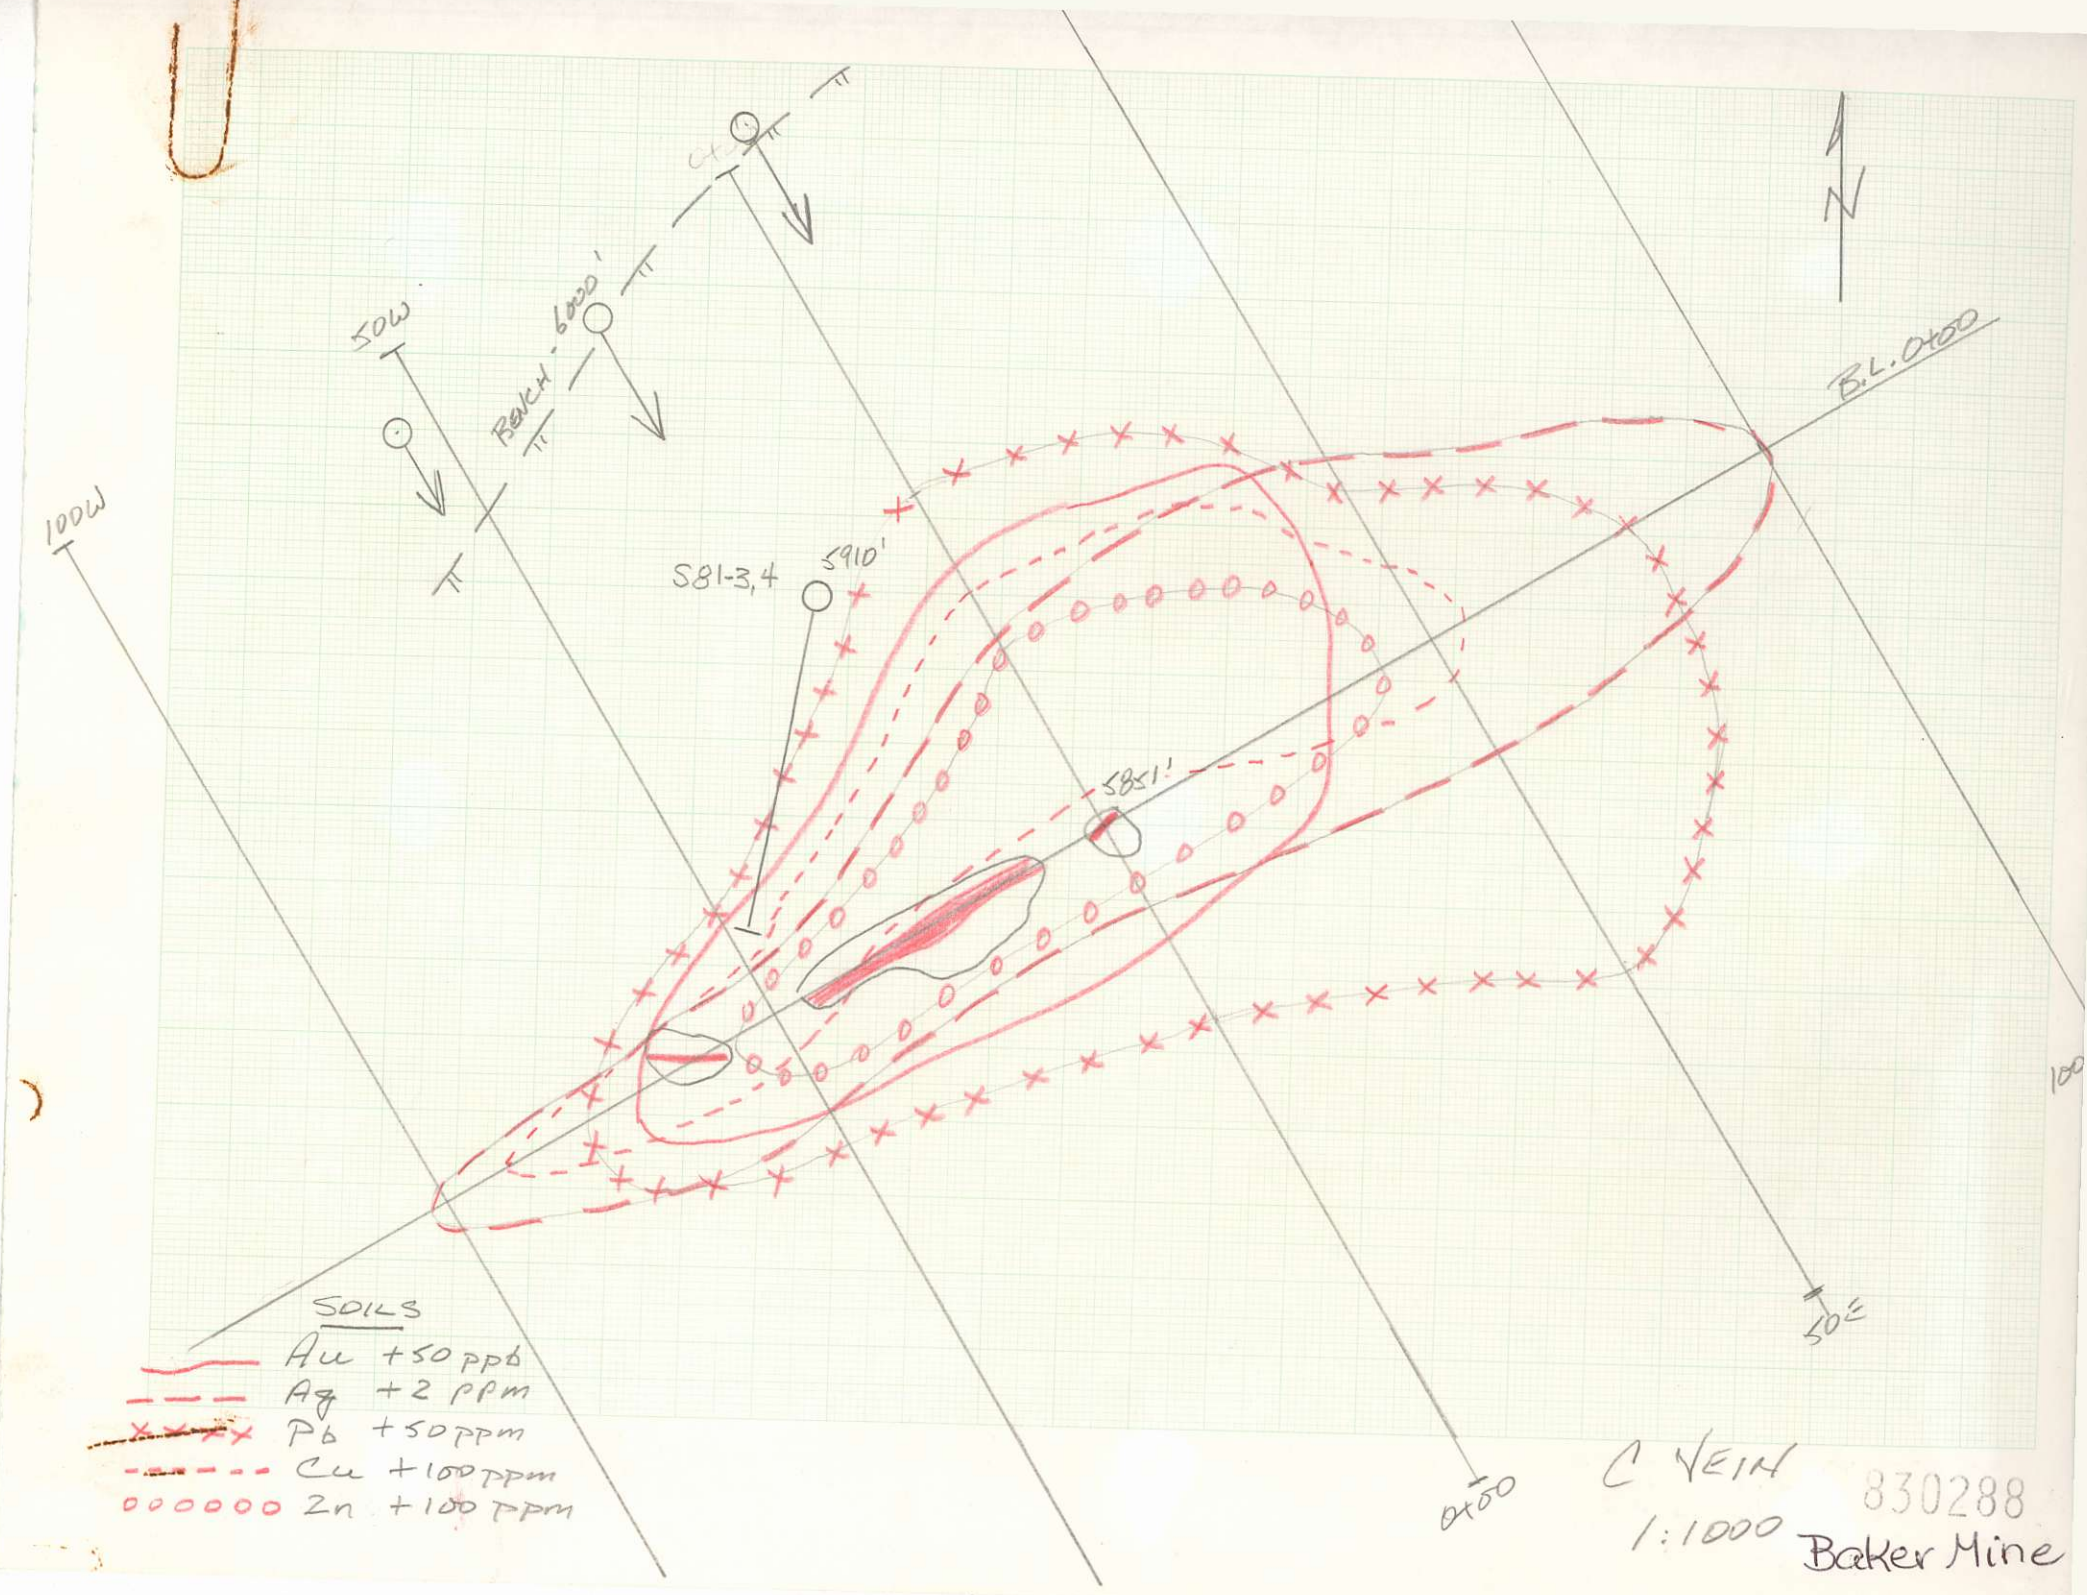 N
50W
BENCH - 6000'
B.L. 0+00
100W
S81-3,4
5910'
5851'
100
50E
SOILS
Au +50 ppb
Ag +2 ppm
Pb +50 ppm
Cu +100 ppm
Zn +100 ppm
0+00
C VEIN
1:1000
830288
Baker Mine